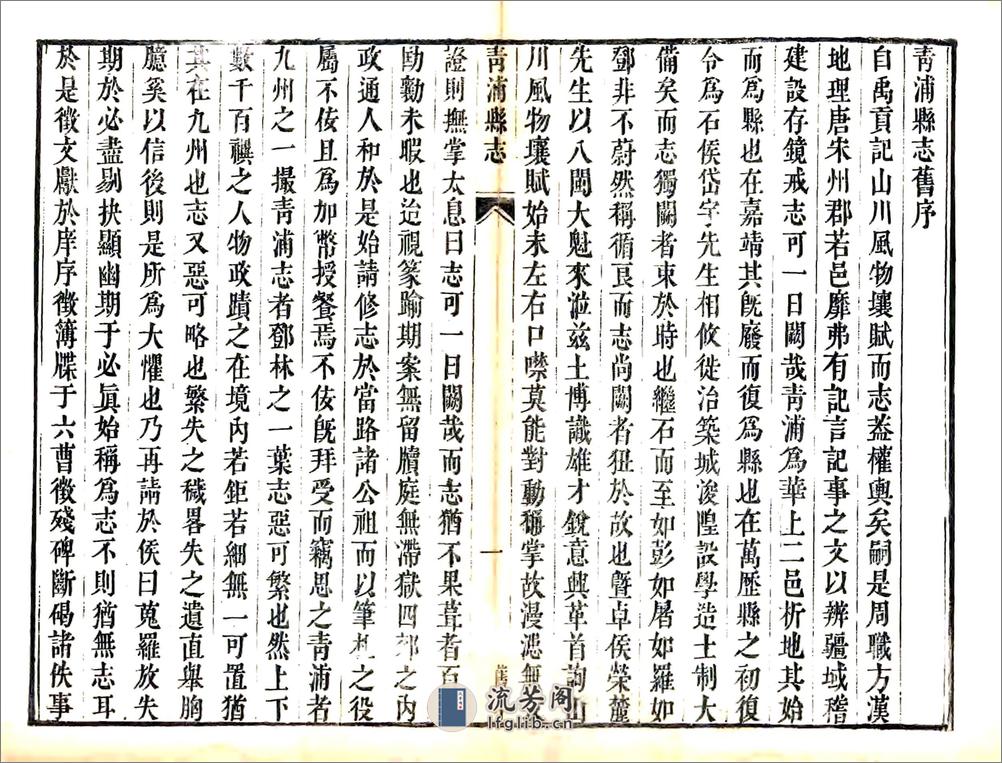 青浦縣志舊序
自禹貢記山川風物壤賦而志葢權輿矣嗣是周職方漢
地理唐宋州郡若邑靡弗有記言記事之文以辨疆域稽
建設存鏡戒志可一日闕哉青浦爲華上二邑析地其始
而爲縣也在嘉靖其旣廢而復爲縣也在萬歷縣之初復
令爲石侯岱宇先生相攸徙治築城浚隍設學造士制大
備矣而志獨闕者束於時也繼石而至如彭如屠如羅如
鄧非不蔚然稱循良而志尚闕者狃於故也曁卓侯榮麓
先生以八閩大魁來涖兹土博識雄才銳意興革首詢山
川風物壤賦始末左右口噤莫能對動稱掌故漫漶無
青浦縣志
一
證則撫掌太息曰志可一日闕哉而志猶不果葺者百
勩勷未暇也迨視篆踰期案無留牘庭無滯獄四郊之內
政通人和於是始請修志於當路諸公祖而以筆札之役
屬不佞且爲加幣授餐焉不佞旣拜受而竊思之青浦者
九州之一撮青浦志者鄧林之一葉志惡可繁也然上下
數千百禩之人物政蹟之在境內若鉅若細無一可置猶
其在九州也志又惡可略也繁失之穢畧失之遺直舉胸
臆奚以信後則是所爲大懼也乃再請於侯曰蒐羅放失
期於必盡剔抉顯幽期于必眞始稱爲志不則猶無志耳
於是徵文獻於庠序徵簿牒于六曹徵殘碑斷碣諸佚事
流芳阁
lfglib.cn